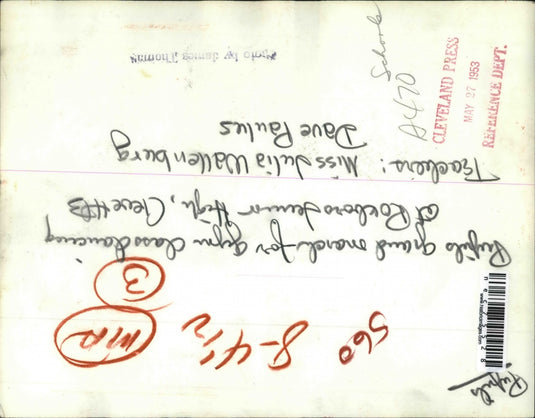 Pupils grand march for gym class dancing
at Roxboro Junior High, Cleve Hts
Teachers: Miss Julia Wallenburg
Dave Paules
Photo by James Thomas
Schools
A470
CLEVELAND PRESS
MAY 27 1953
REFERENCE DEPT.
3
560 8-4 1/2
Pupils